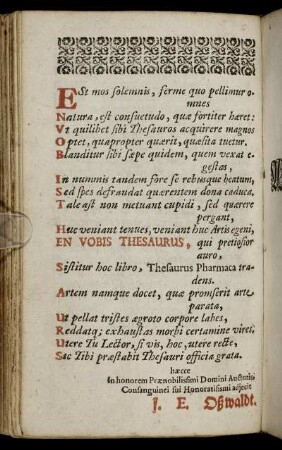 ESt mos solemnis, ferme quo pellimur o-
mnes
Natura, est consuetudo, quæ fortiter hæret:
Vt quilibet sibi Thesauros acquirere magnos
Optet, quapropter quærit, quæsita tuetur.
Blanditur sibi sæpe quidem, quem vexat e-
gestas,
In nummis tandem fore se rebusque beatum,
Sed spes defraudat quærentem dona caduca,
Tale ast non metuant cupidi, sed quærere
pergant,
Huc veniant tenues, veniant huc Artis egeni,
EN VOBIS THESAURUS, qui pretiosior
auro,
Sistitur hoc libro, Thesaurus Pharmaca tra-
dens.
Artem namque docet, quæ promserit arte
parata,
Ut pellat tristes ægroto corpore labes,
Reddatq; exhaustas morbi certamine vires,
Utere Tu Lector, si vis, hoc, utere recte,
Sic Tibi præstabit Thesauri officia grata.
hæcce
In honorem Prænobilissimi Domini Auctoris
Consanguinei sui Honoratissimi adjecit
J. E. Oßwaldt.